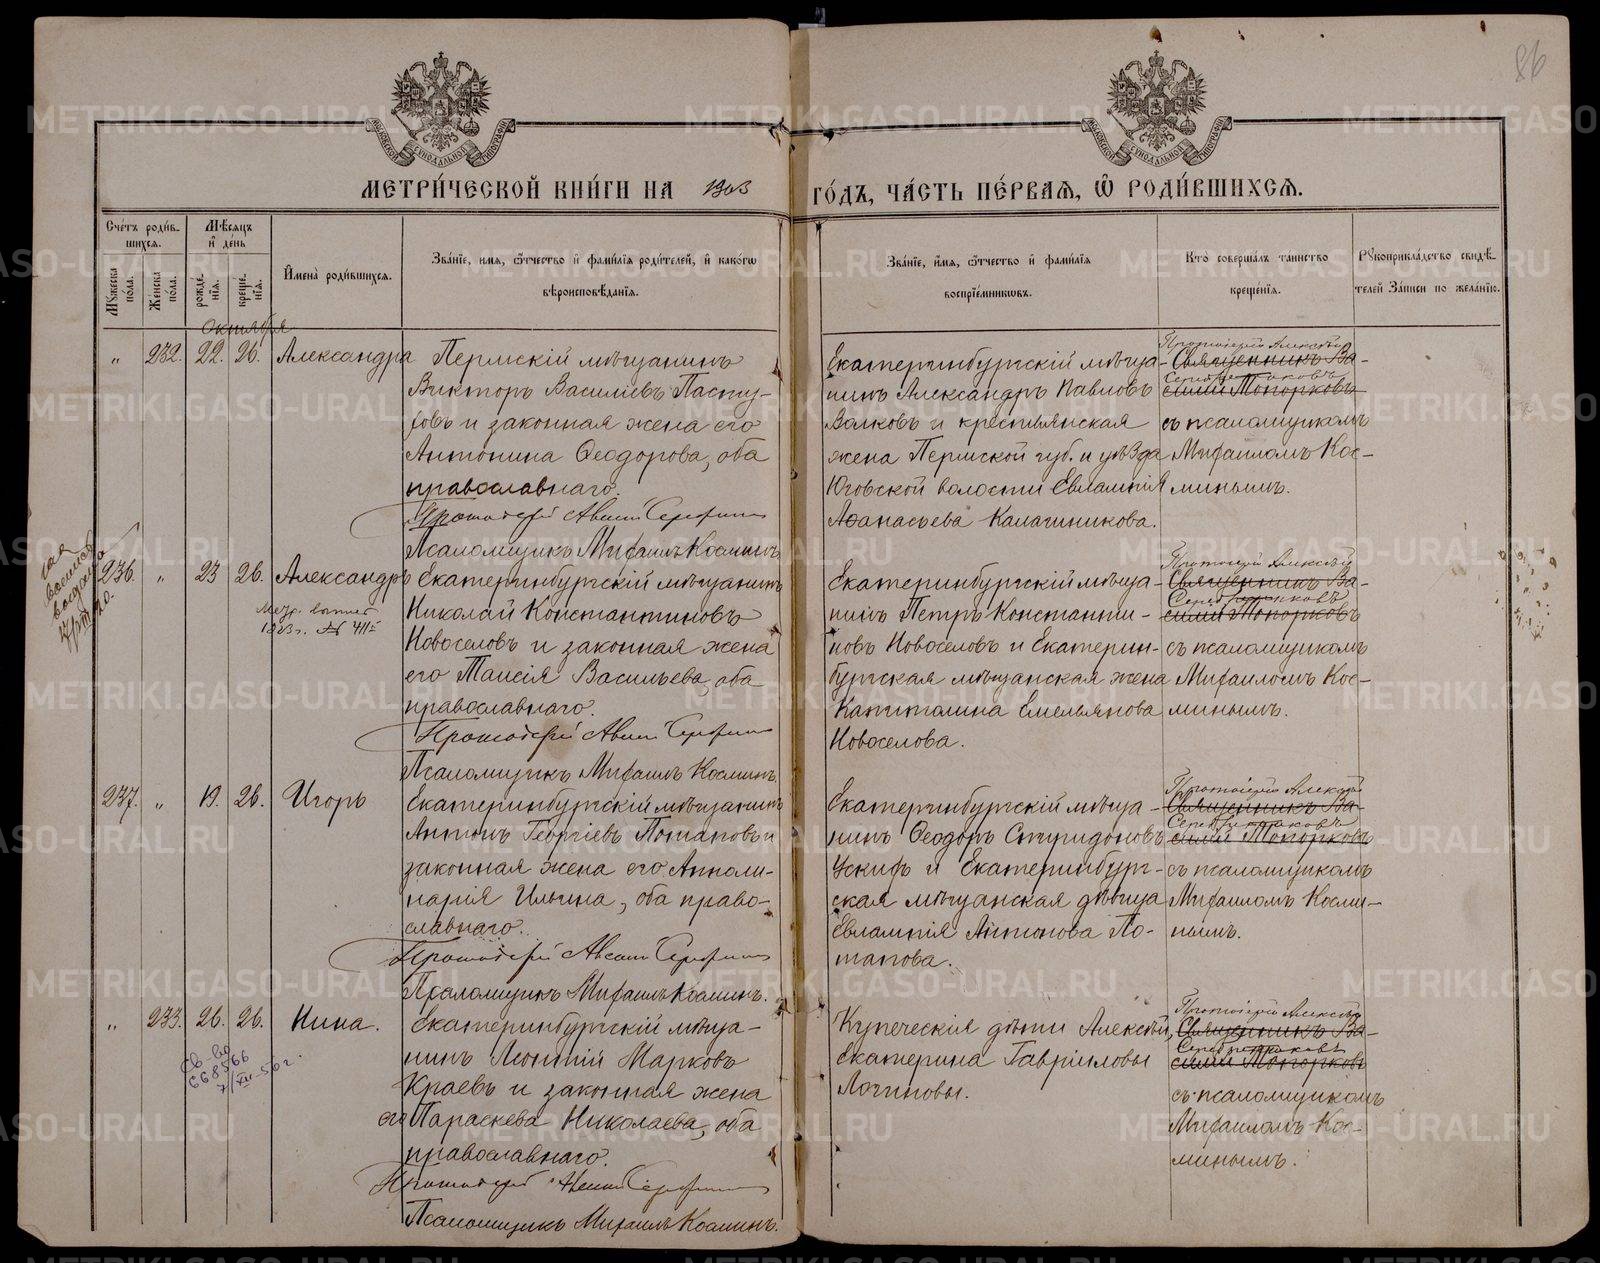 86
МОСКОВСКОЙ СѴНОДАЛЬНОЙ ТИПОГРАФІИ
МОСКОВСКОЙ СѴНОДАЛЬНОЙ ТИПОГРАФІИ
МЕТРИ́ЧЕСКОЙ КНИ́ГИ НА 1903 ГО́ДЪ, ЧА́СТЬ ПЕ́РВАѦ, Ѡ҆ РОДИ́ВШИХСѦ.
Сче́тъ роди́в-
шихсѧ.
Мꙋ́жеска по́ла.
Же́нска по́ла.
Мѣ́сѧцъ
и҆ де́нь
рожде́-
нїѧ.
креще́-
нїѧ.
И҆мена̀ роди́вшихсѧ.
Зва́нїе, и҆́мѧ, ѻ҆́тчество и҆ фами́лїѧ роди́телей, и҆ како́гѡ
вѣроисповѣ́данїѧ.
Зва́нїе, и҆́мѧ, ѻ҆́тчество и҆ фами́лїѧ
воспрїе́мникѡвъ.
Кто̀ соверша́лъ та́инство
креще́нїѧ.
Рꙋкоприкла́дство свидѣ́-
телей За́писи по жела́нїю.
Октября
" 232. 22. 26. Александра
Пермскій мѣщанинъ
Викторъ Василіевъ Пасту-
ховъ и законная жена его
Антонина Ѳеодорова, оба
православнаго.
Псаломщикъ Михаилъ Косминъ
Екатеринбургскій мѣща-
нинъ Александръ Павловъ
Волковъ и крестьянская
жена Пермской губ. и уѣзда
Юговской волости Евлампія
Аѳанасьева Калашникова.
Протоіерей Алексѣй
Священникъ Ва-
Серебренниковъ
силій Топорковъ
съ псаломщикомъ
Михаиломъ Кос-
минымъ.
236. " 23 26. Александръ
1923 г.
Екатеринбургскій мѣщанинъ
Николай Константиновъ
Новоселовъ и законная жена
его Таисія Васильева, оба
православнаго.
Псаломщикъ Михаилъ Косминъ
Екатеринбургскій мѣща-
нинъ Петръ Константи-
новъ Новоселовъ и Екатерин-
бургская мѣщанская жена
Капиталина Емельянова
Новоселова.
Протоіерей Алексѣй
Священникъ Ва-
Серебренниковъ
силій Топорковъ
съ псаломщикомъ
Михаиломъ Кос-
минымъ.
237. " 19. 26. Игорь
Екатеринбургскій мѣщанинъ
Антонъ Георгіевъ Потаповъ и
законная жена его Апполи-
нарія Ильина, оба право-
славнаго.
Псаломщикъ Михаилъ Косминъ.
Екатеринбургскій мѣща-
нинъ Ѳеодоръ Спиридоновъ
Ускифъ и Екатеринбург-
ская мѣщанская дѣвица
Евлампія Антонова По-
тапова.
Протоіерей Алексѣй
Священникъ Ва-
Серебренниковъ
силій Топорковъ
съ псаломщикомъ
Михаиломъ Косми-
нымъ.
" 233. 26. 26. Нина.
Св-во
668566
7/XII-56 г.
Екатеринбургскій мѣща-
нинъ Леонтій Марковъ
Краевъ и законная жена
его Параскева Николаева, оба
православнаго.
Псаломщикъ Михаилъ Косминъ.
Купеческія дѣти Алексѣй,
Екатерина Гавріиловы
Логиновы.
Протоіерей Алексѣй
Священникъ Ва-
Серебренниковъ
силій Топорковъ
съ псаломщикомъ
Михаиломъ Кос-
минымъ.
METRIKI.GASO-URAL.RU